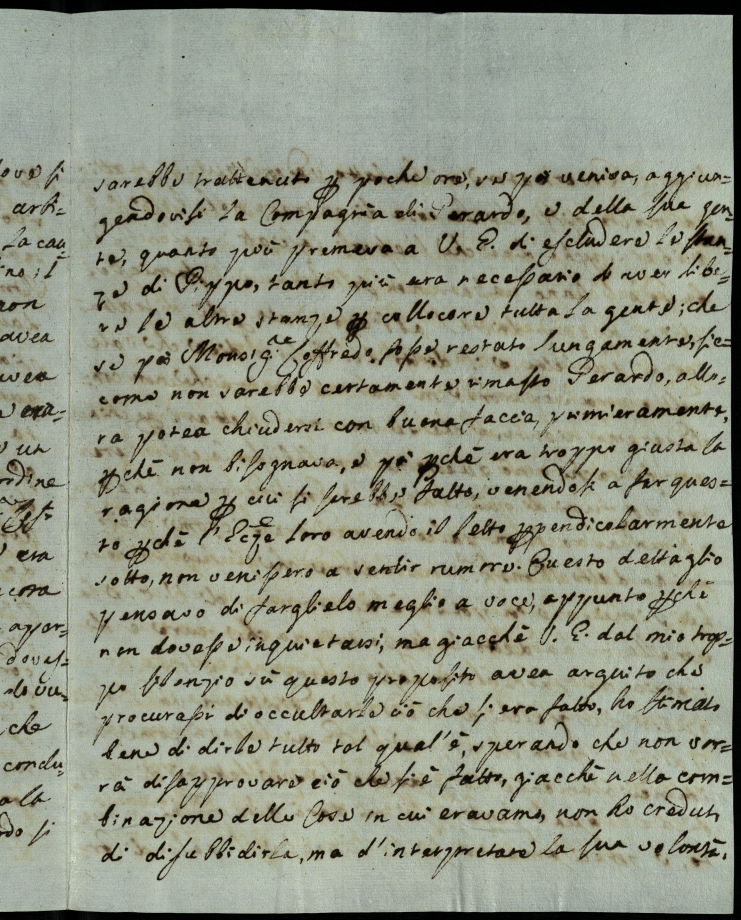 sarebbe trattenuto p poche ore, se poi veniva, aggiun=
gendovisi la Compagnia di Gerardo, e della sua gen=
te, quanto più premeva a V. E. di escludere le stan=
ze di Pippo, tanto più era necessario di aver libe=
re le altre stanze p collocare tutta la gente; che
se poi Monsig.re Coffredo fosse restato lungamente, sic=
come non sarebbe certamente rimasto Gerardo, allo=
ra potea chiudersi con buona faccia, primieramente,
pchè non bisognava, e poi pchè era troppo giusta la
ragione p cui si sarebbe fatto, venendosi a far ques=
to pchè l'Ecc.ze loro avendo il letto ppendicolarmente
sotto, non venissero a sentir rumore. Questo dettaglio
pensavo di farglielo meglio a voce, appunto pchè
non dovesse inquietarsi, ma giacchè V. E. dal mio trop=
po silenzio sù questo proposito avea arguito che
procurassi di occultarle ciò che si era fatto, ho stimato
bene di dirle tutto tal qual'è, sperando che non vor=
rà disapprovare ciò che si è fatto, giacchè nella com=
binazione delle Cose in cui eravamo, non ho creduto
di disubbidirla, ma d'interpretare la sua volontà.
ove si
arbi=
la cau
non
avea
avea
e un
ordine
era
cora
appar=
doves=
che
condu=
a la
rdo si